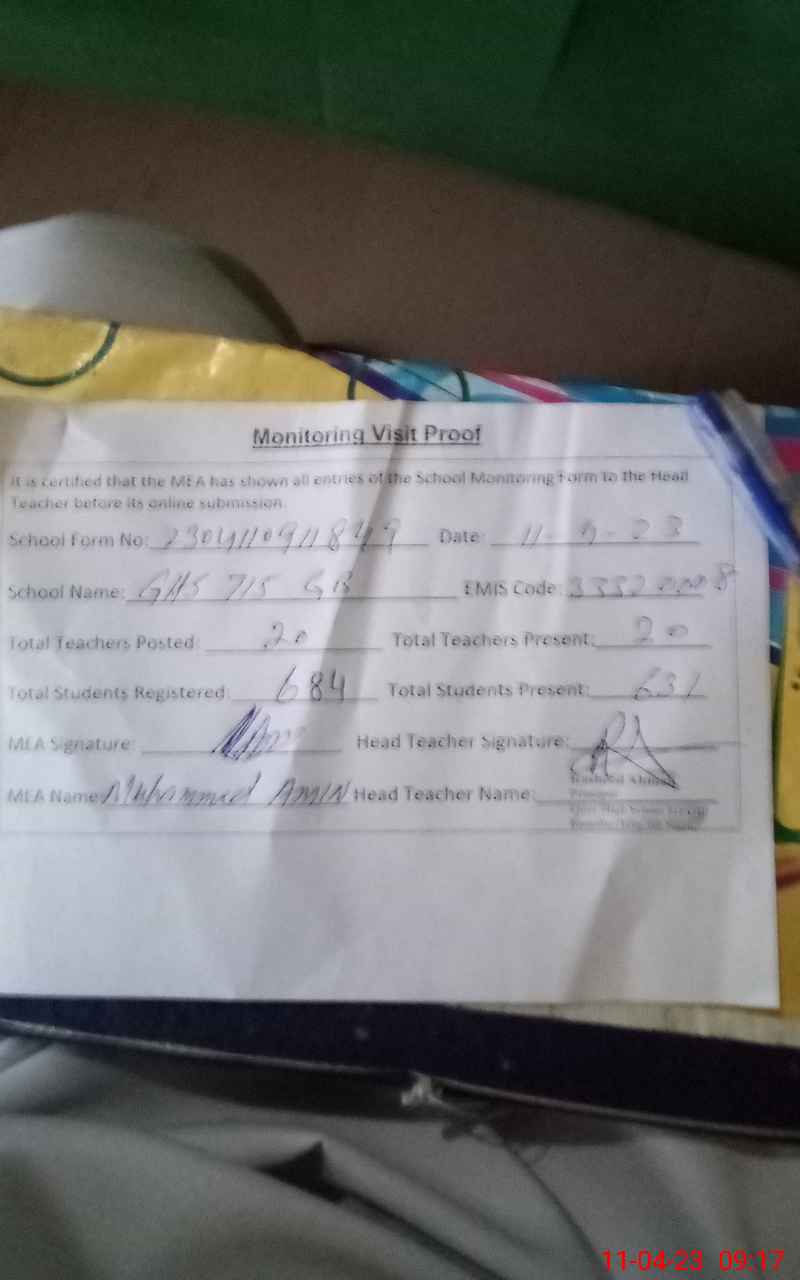 Monitoring Visit Proof
It is certified that the MEA has shown all entries of the School Monitoring Form to the Head
Teacher before its online submission.
School Form No: 230411091849 Date: 11-4-23
School Name: GHS 715 GB EMIS Code: 33320008
Total Teachers Posted: 20 Total Teachers Present: 20
Total Students Registered: 684 Total Students Present: 631
MEA Signature: Head Teacher Signature:
MEA Name: Muhammad AMIN Head Teacher Name:
11-04-23 09:17